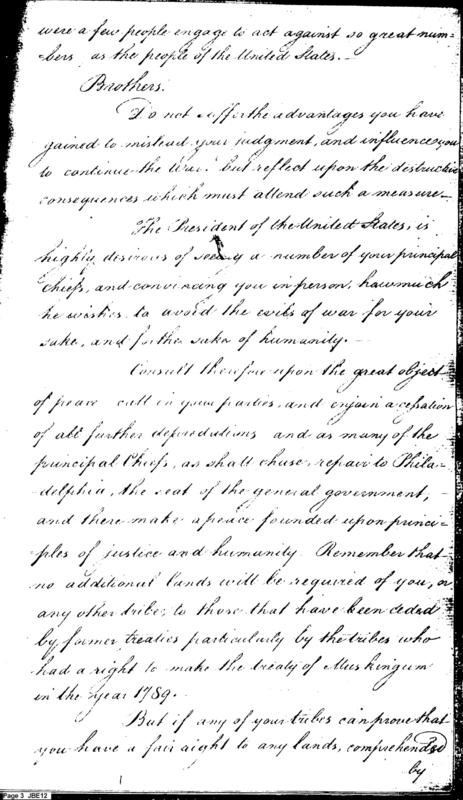 were a few people engage to act against so great num-
bers as the people of the United States.—
Brothers.
Do not suffer the advantages you have
gained to mislead your judgment, and influence you
to continue the War, but reflect upon the destructive
consequences which must attend such a measure—
The President of the United States, is
highly desirous of seeing a number of your principal
Chiefs, and convincing you in person, how much
he wishes to avoid the evils of war for your
sake, and for the sake of humanity.—
Consult therefore upon the great object
of peace call in your parties, and enjoin a cessation
of all further depredations and as many of the
principal Chiefs, as shall chuse, repair to Phila-
delphia, the seat of the general government,
and there make a peace founded upon princi-
ples of justice and humanity. Remember that
no additional lands will be required of you, or
any other tribe, to those that have been ceded
by former treaties particularly by the tribes who
had a right to make the treaty of Muskingum
in the year 1789.
But if any of your tribes can prove that
you have a fair right to any lands, comprehended
by
Page 3 JBE12